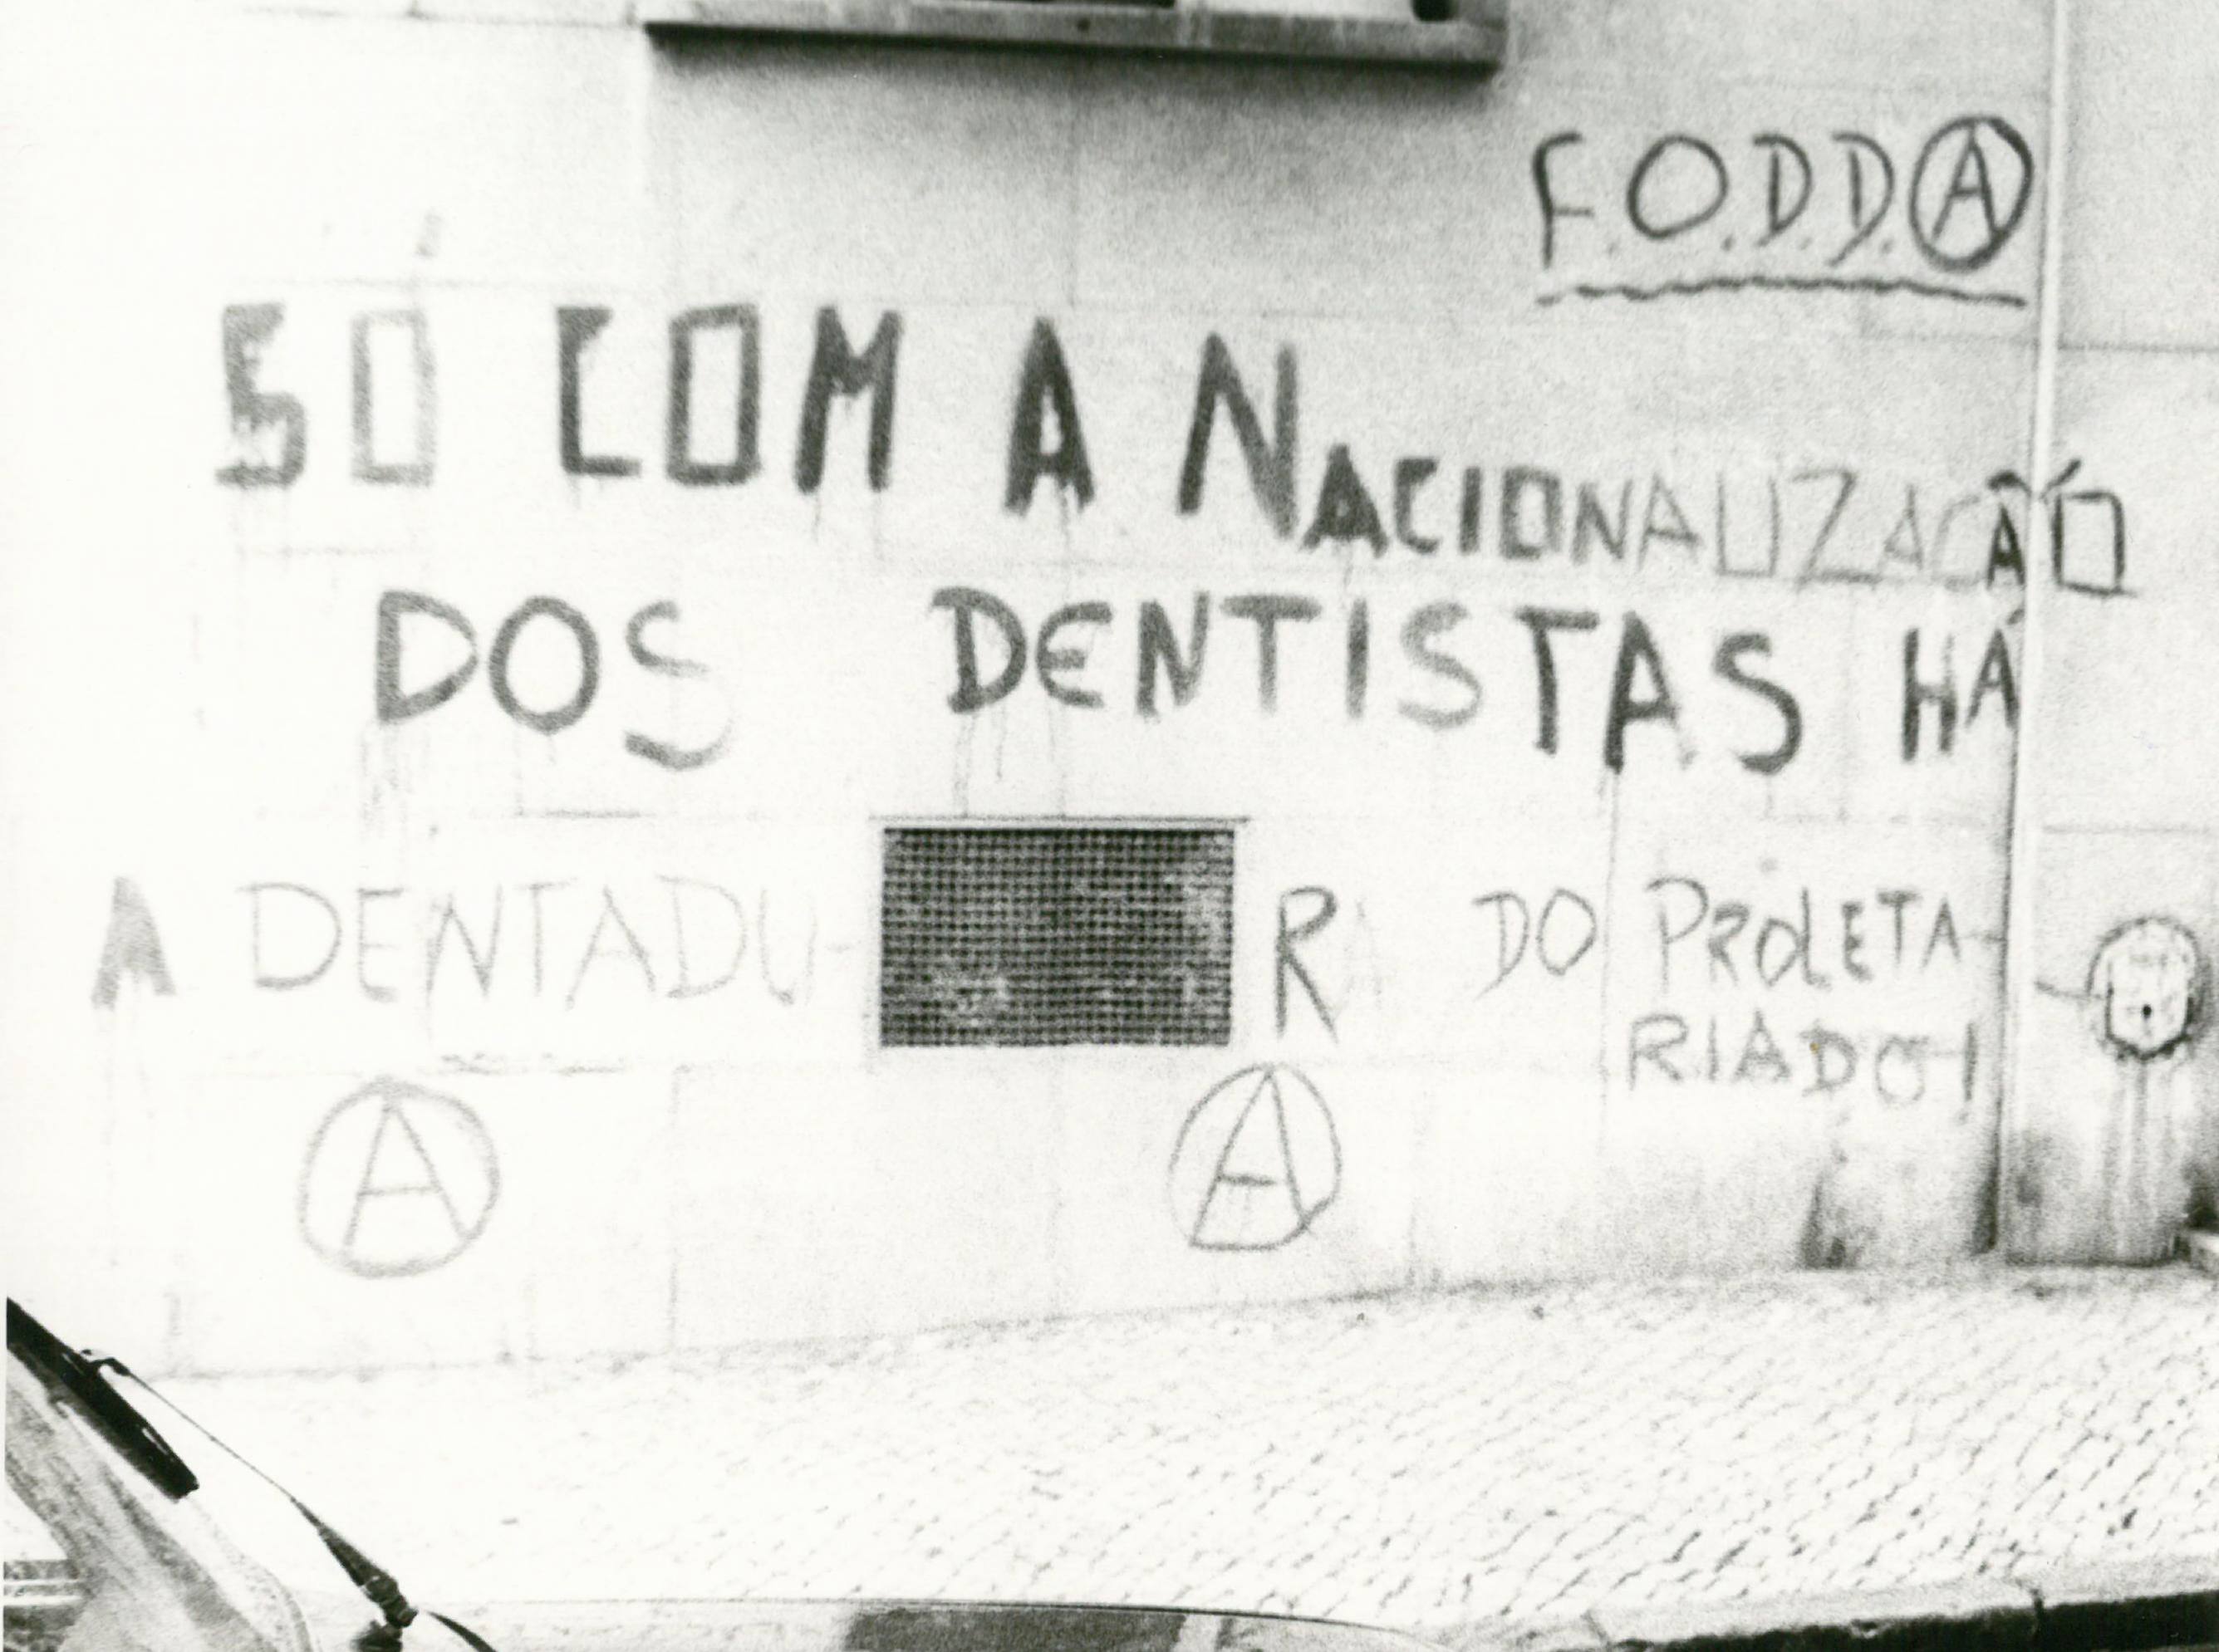 F.O.D.D.Ⓐ
SÓ COM A NACIONALIZAÇÃO
DOS DENTISTAS HÁ
A DENTADURA DO PROLETA-
RIADO!
Ⓐ Ⓐ